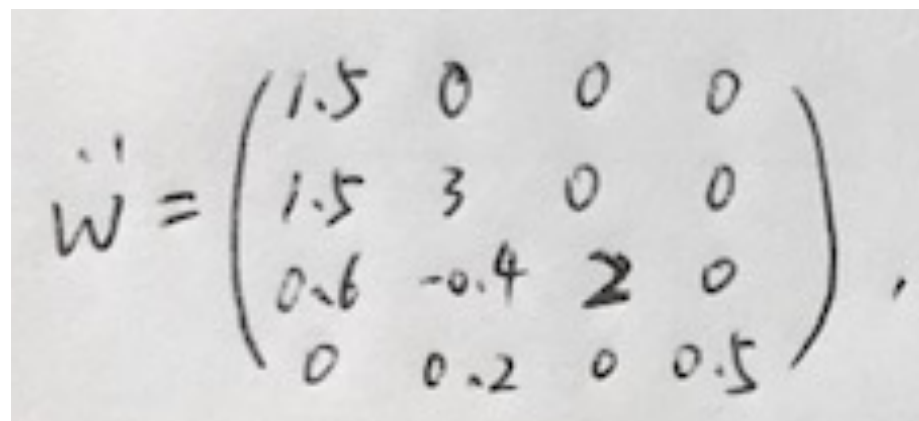 1.5 0 0 0
Ẅ = 1.5 3 0 0
0.6 -0.4 2 0 ,
0 0.2 0 0.5